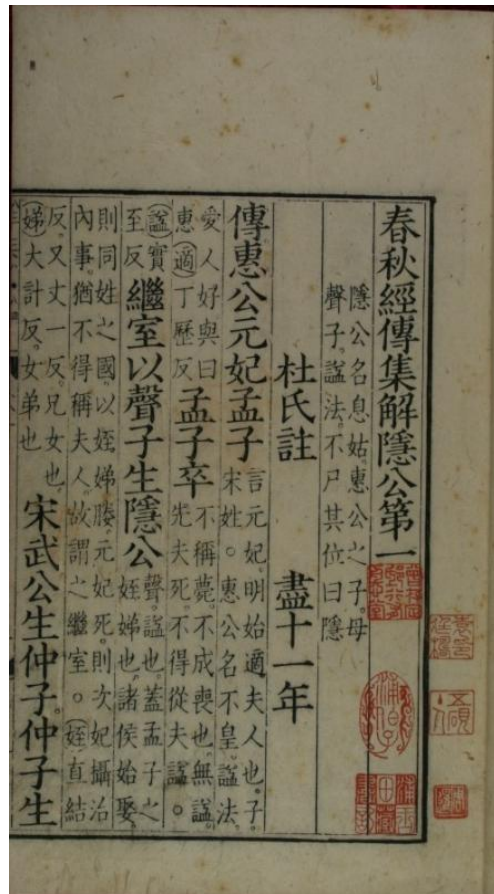 春秋經傳集解隱公第一
隱公名息姑。惠公之子。母
聲子。謚法。不尸其位曰隱
杜氏註 盡十一年
傳惠公元妃孟子
言元妃。明始適夫人也。子。
宋姓。○惠公名不皇。謚法。
愛人好與曰
惠適丁歷反
孟子卒
不稱薨。不成喪也。無謚。
先夫死。不得從夫謚。○
謚實
至反
繼室以聲子生隱公
聲。謚也。蓋孟子之
姪娣也。諸侯始娶。
則同姓之國。以姪娣媵。元妃死。則次妃攝治
內事。猶不得稱夫人。故謂之繼室。○姪直結
反。又丈一反。兄女也。
娣大計反。女弟也
宋武公生仲子。仲子生